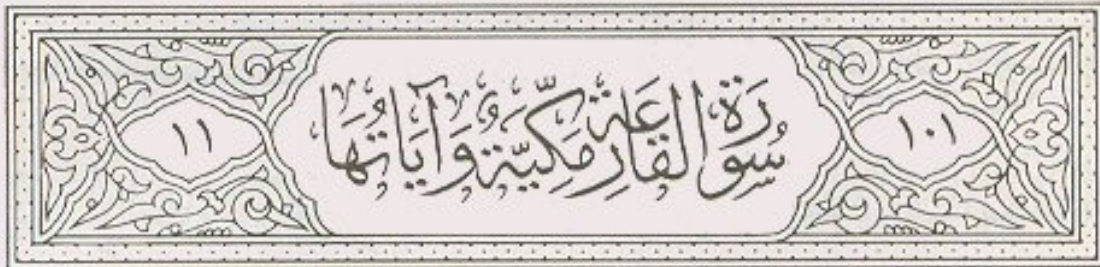 ١٠١ سُورَةُ القَارِعَة مَكِّيَّةٌ وَآيَاتُهَا ١١